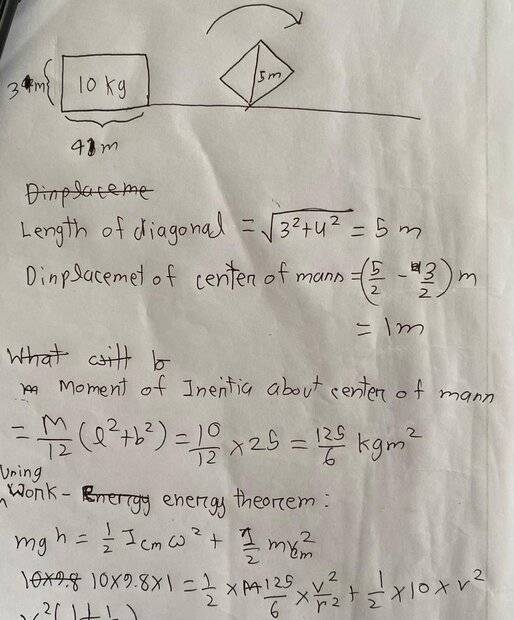 3m{ 10 kg 5m
4m
Dinplaceme
Length of diagonal = √3²+4² = 5 m
Dinplacemet of center of mann = (5/2 - 3/2) m
= 1m
What will b
m Moment of Inertia about center of mann
= M/12 (l²+b²) = 10/12 × 25 = 125/6 kgm²
Uning
Work - Energy energy theorem :
mgh = 1/2 Icm ω² + 1/2 mv²cm
10×9.8 10×9.8×1 = 1/2 × 125/6 × v²/r² + 1/2 × 10 × v²